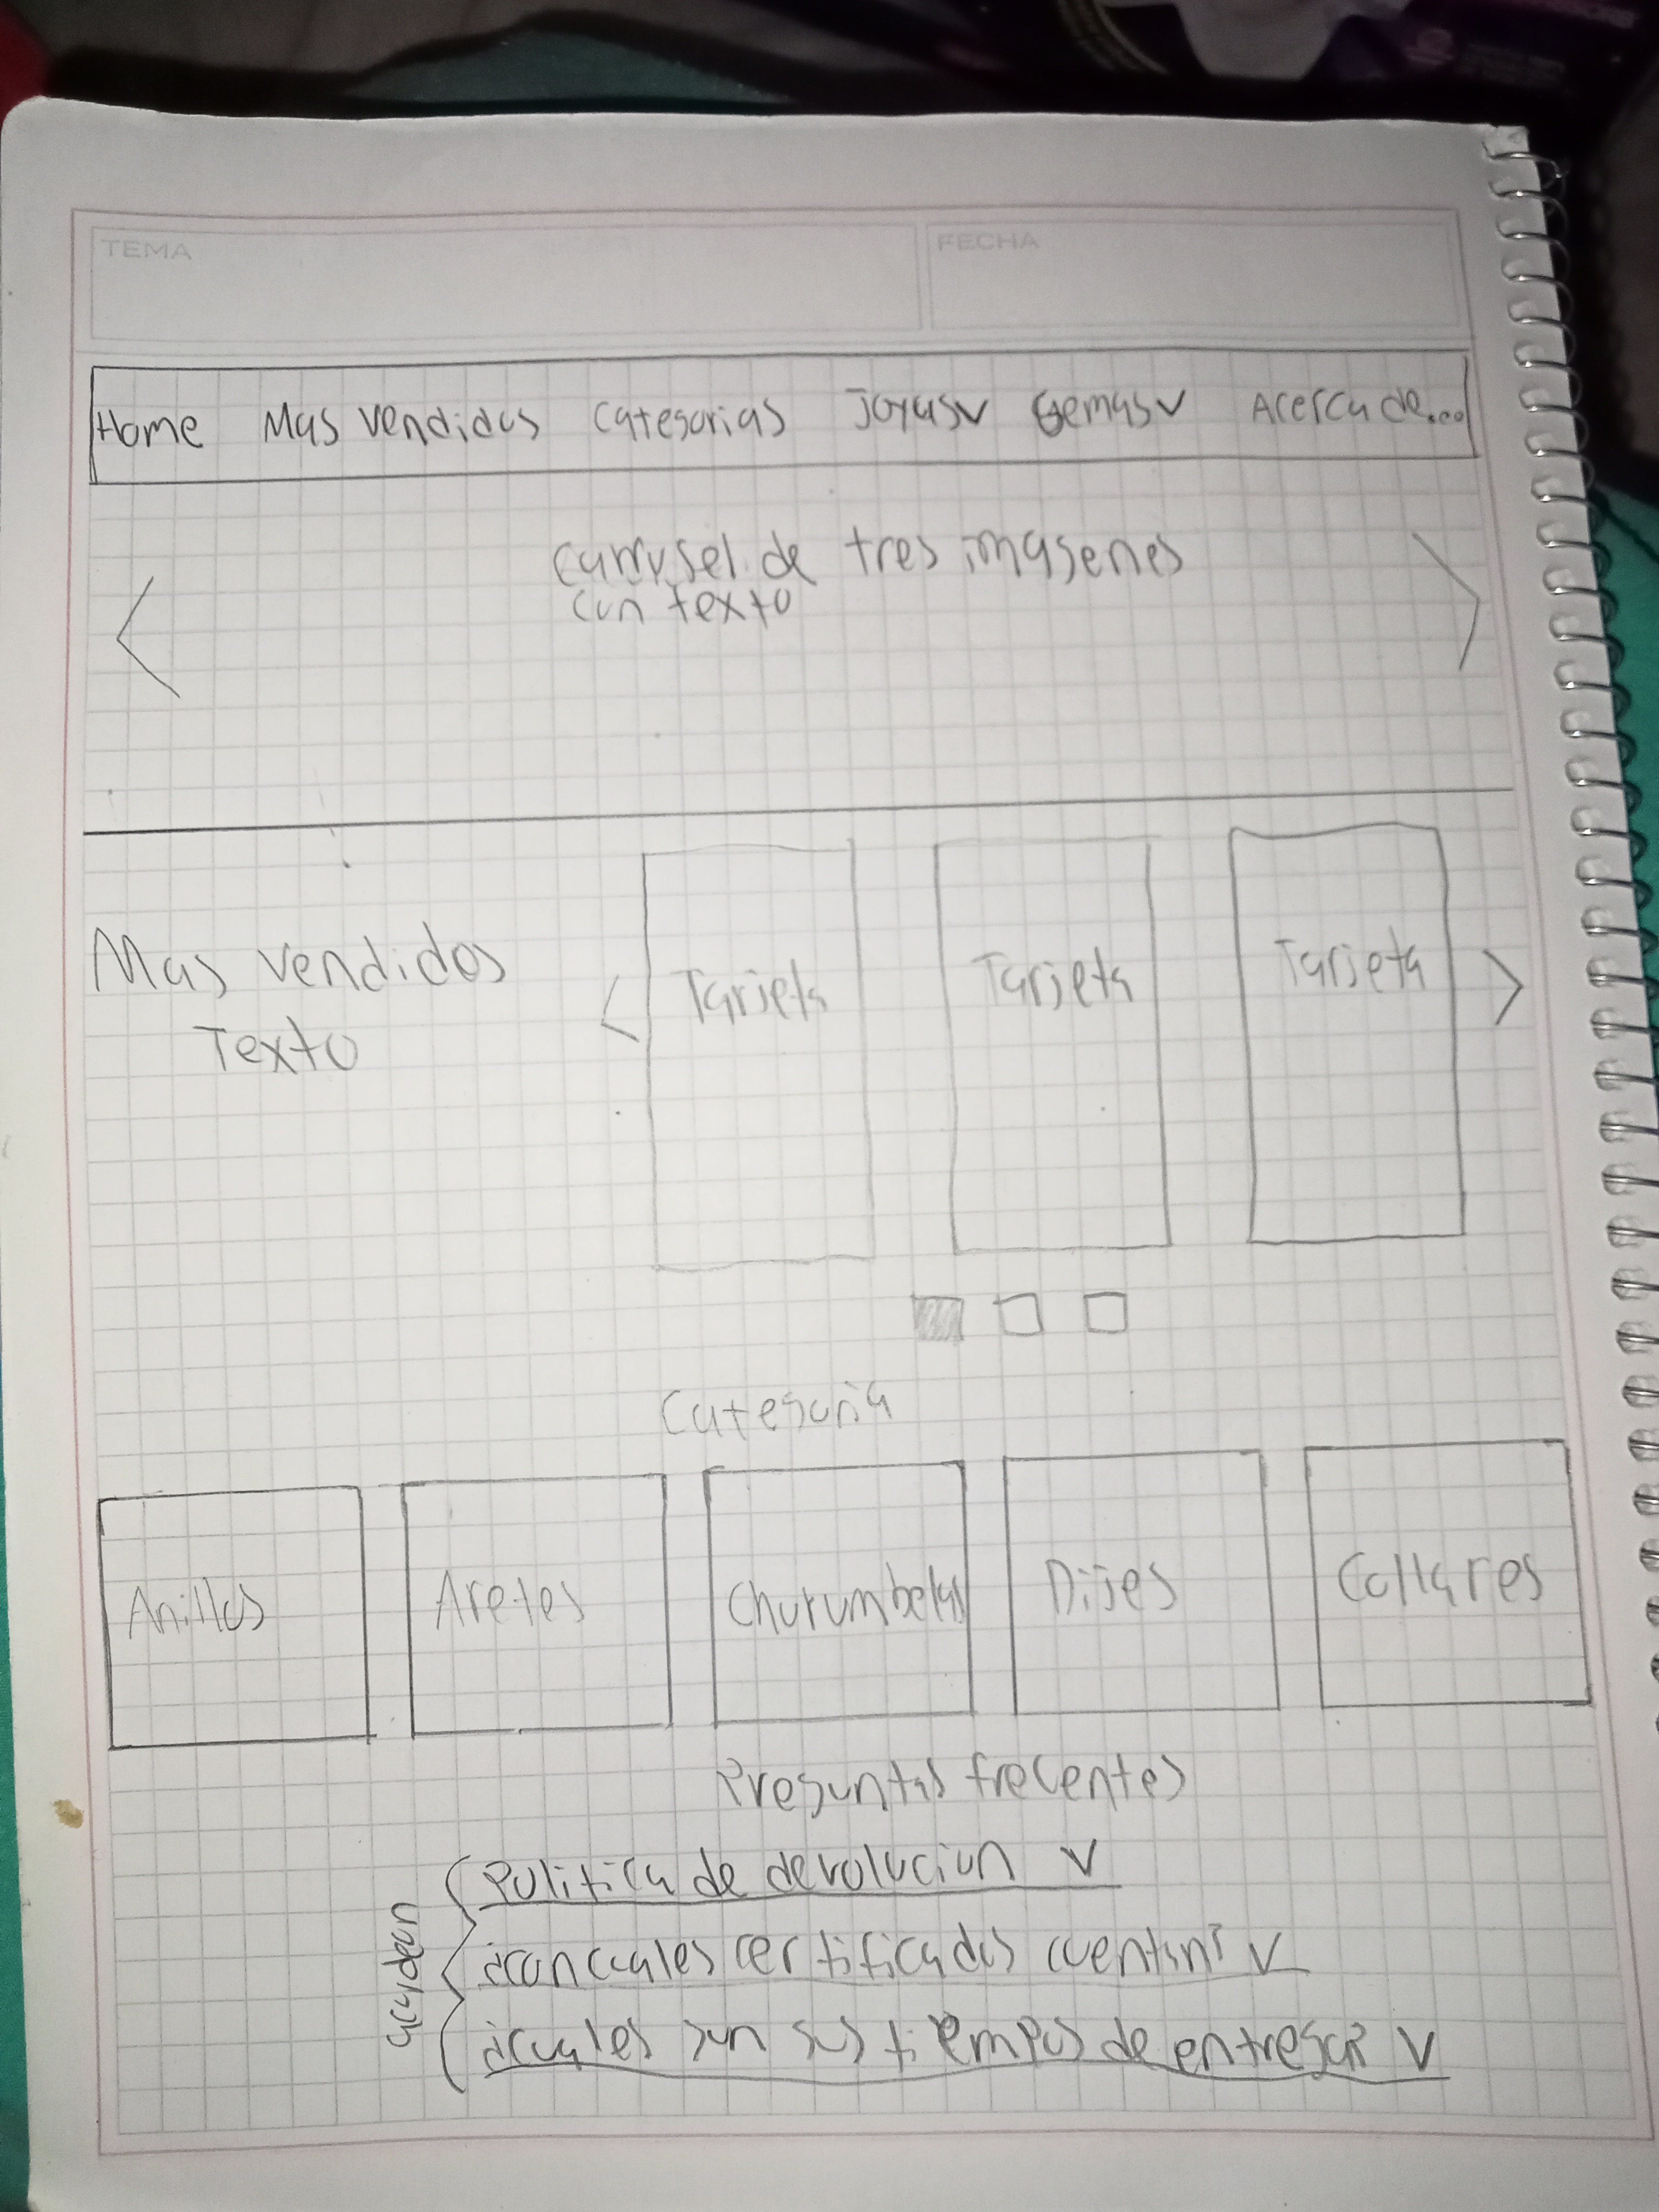 TEMA
FECHA
Home Mas vendidos Categorias Joyas v Gemas v Acerca de...
< carrusel de tres imagenes >
con texto
Mas vendidos
Texto
< Tarjeta Tarjeta Tarjeta >
Categoria
Anillos Aretes Churumbelas Dijes Collares
Preguntas frecentes
acordeon
Politica de devolucion v
¿con cuales certificados cuentan? v
¿cuales son sus tiempos de entrega? v